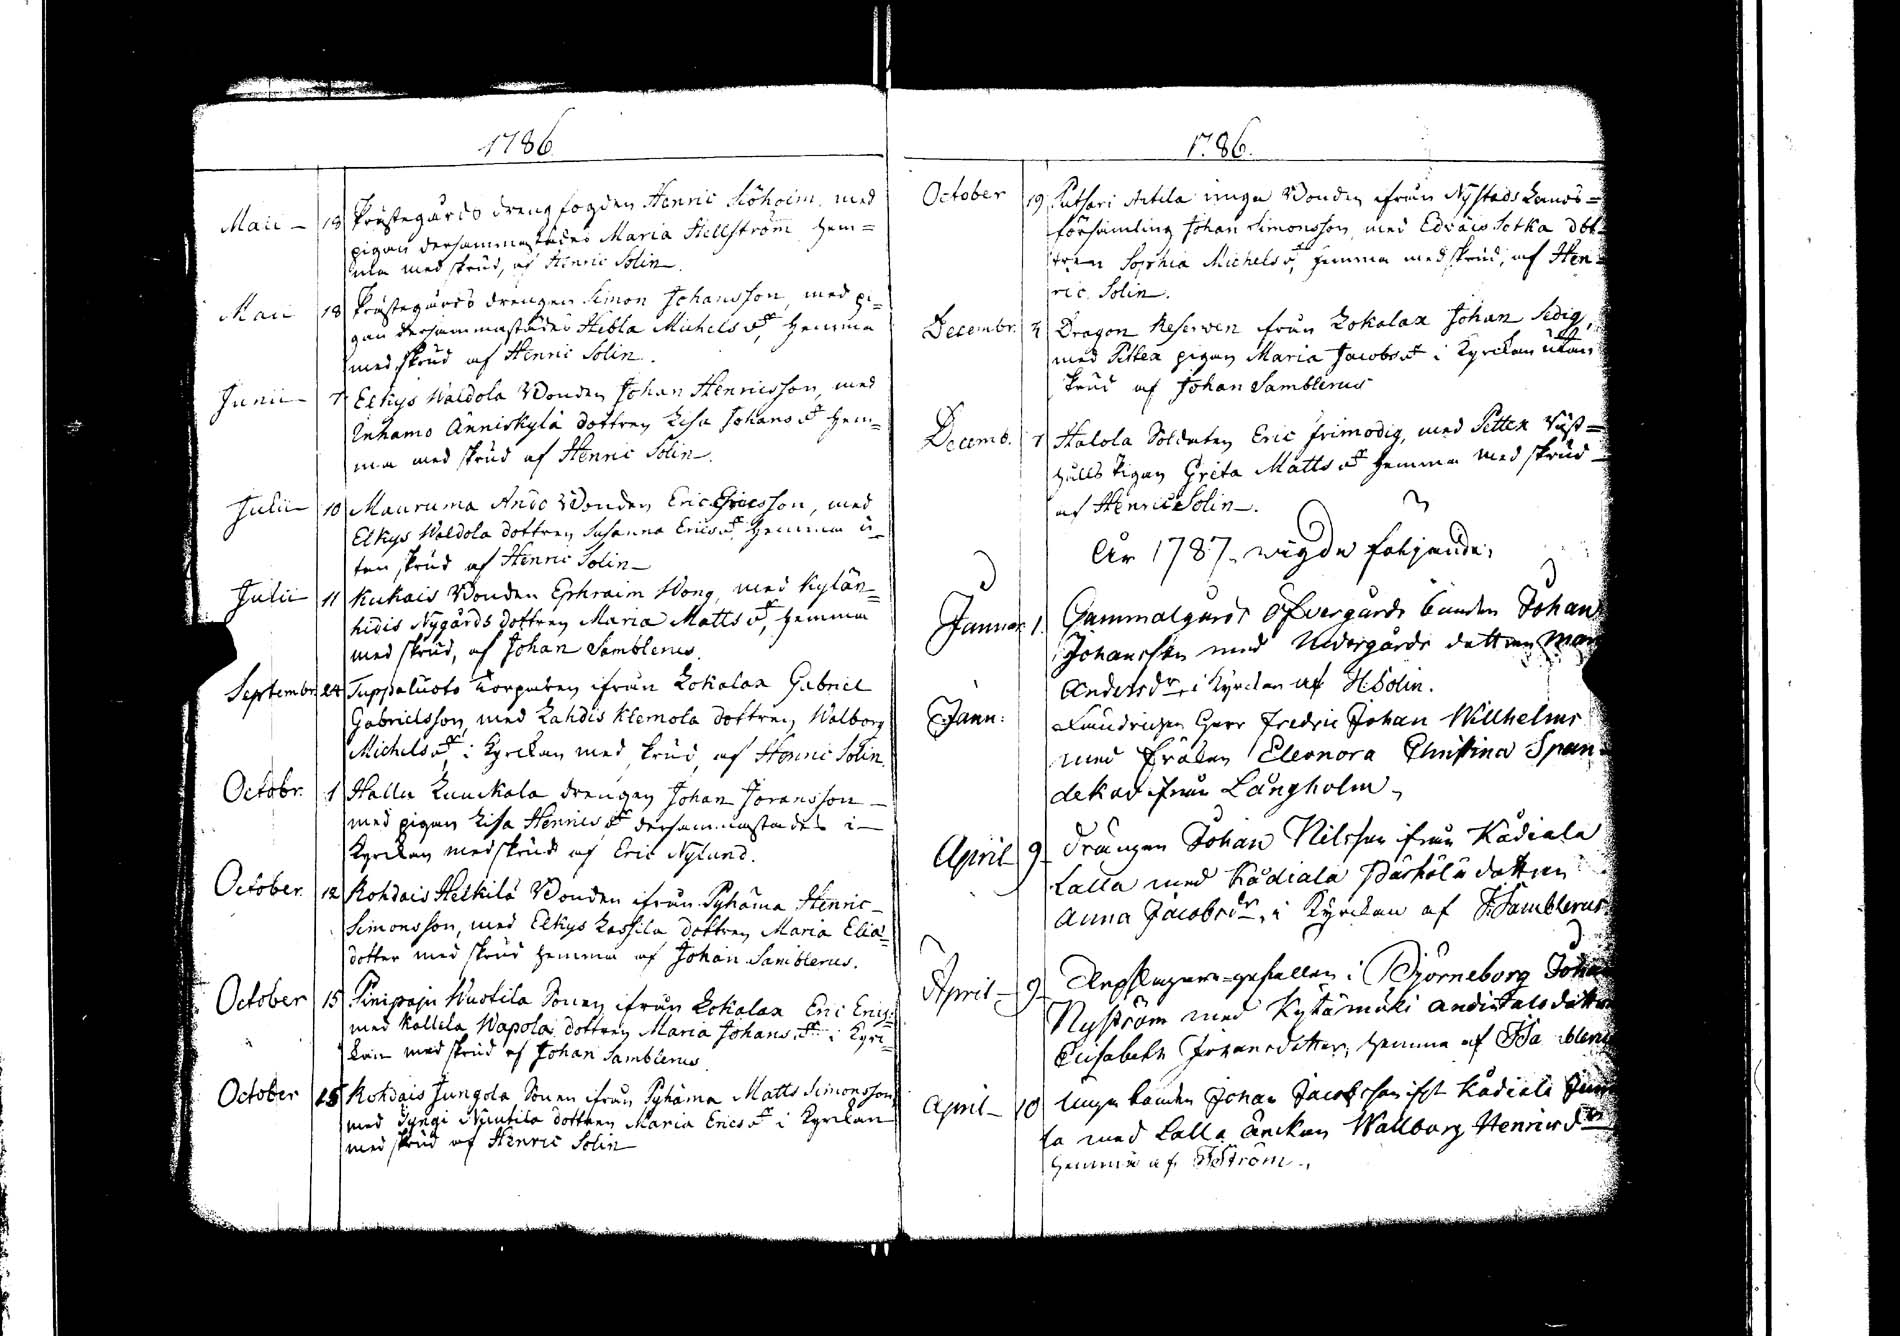 1786
Maii - 18 Prästegårds drengfogden Henric Siöholm, med
pigan dersammastädes Maria Hellström hem=
ma med skrud, af Henric Solin.
Maii 18 Prästegårds drengen Simon Johansson, med pi=
gan dersammastädes Hebla Michels dr, hemma
med skrud af Henric Solin.
Junii - Elkys Waldola Bonden Johan Henricsson, med
Inhamo Änniskylä dottren Lisa Johans dr hem=
ma med skrud af Henric Solin.
Julii 10 Mauruma Ando Bonden Eric Ericsson, med
Elkys Waldola dottren Susanna Erics dr hemma u=
tan skrud af Henric Solin -
Julii 11 Kukais Bonden Ephraim Wong, med Kylän=
hidis Nygårds dottren Maria Matts dr, hemma
med skrud, af Johan Samblerus.
Septembr. 24 Tuppaluoto Torparen ifrån Lokalax Gabriel
Gabrielsson, med Lahdis Klemola dottren Walborg
Michels dr, i Kyrckan med skrud, af Henric Solin.
Octobr. 1 Hallu Luuckala drengen Johan Joransson -
med pigan Lisa Henrics dr dersammastädes i -
Kyrckan med skrud af Eric Nylund.
October 12 Rohdais Heikilä Bonden ifrån Pyhäma Henric -
Simonsson, med Elkys Lassila dottren Maria Elia=
dotter med skrud hemma af Johan Samblerus.
October 15 Pinipaju Wuotila Sonen ifrån Lokalax Eric Erics:
med Kallela Wapola dottren Maria Johans dr i Kyrc=
kan med skrud af Johan Samblerus.
October 15 Rohdais Jungola Sonen ifrån Pyhäma Matts Simonsson
med Syngi Nuutila dottren Maria Erics dr i Kyrckan
med skrud af Henric Solin
1786.
October 19 Putsari Artila unga Bonden ifrån Nystads Lands=
församling Johan Simonsson, med Edväis Sotka dot=
tren Sophia Michels dr, hemma med skrud, af Hen=
ric Solin.
Decembr. Dragon Reserven från Lokalax Johan Sedig,
med Pettex pigan Maria Jacobs dr i Kyrckan utan
skrud af Johan Samblerus
Decemb. Halola Soldaten Eric Frimodig, med Pettex Väst=
hålls Pigan Greta Matts dr hemma med skrud -
af Henric Solin -.
År 1787 wigde följande.
Januar. 1. Gammalgårds Öfvergårds bonden Johan
Johansson med Nedergårds dottren Mar
Andersdr, i Kyrckan af H:Solin.
Jann: Herr Fredric Johan Willhelms
med Fröken Eleonora Christina Span-
dekov från Långholm -
April 9 Drängen Johan Nilsson ifrån Kådiala
Lalla med Kådiala dottren
Anna Jacobsdr, i Kyrckan af J:Samblerus
April - 9 gesällen i Björneborg Johan
Nyström med Kytämäki dotter
Elisabeth Johansdotter, hemma af J:Sa blerus
April - 10 Unga bonden Johan Jacobsson ifr. Kådiala
la med Lalla änckan Wallborg Henricsdr
hemma af Ström.